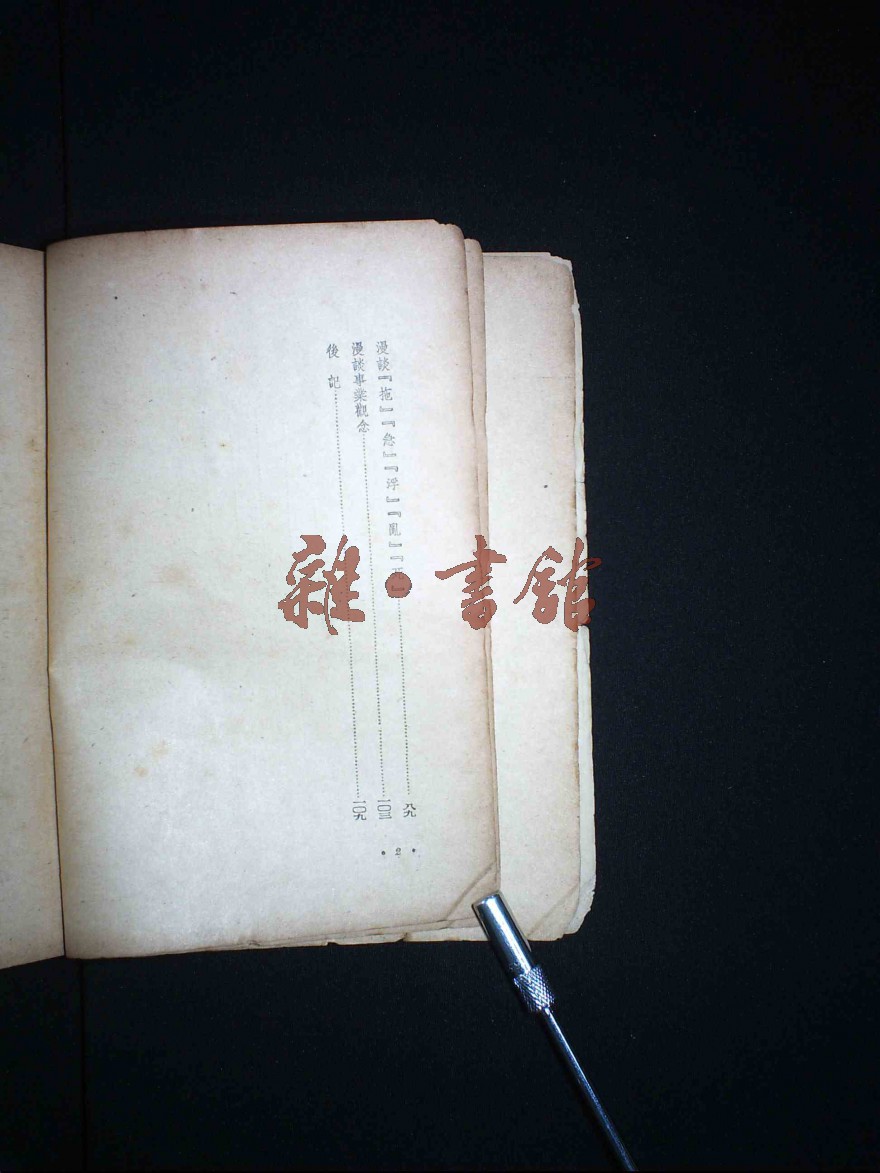 漫談『拖』『急』『浮』『亂』『』……八九
漫談事業觀念……一〇三
後記……一〇九
• 2 •
雜•書館